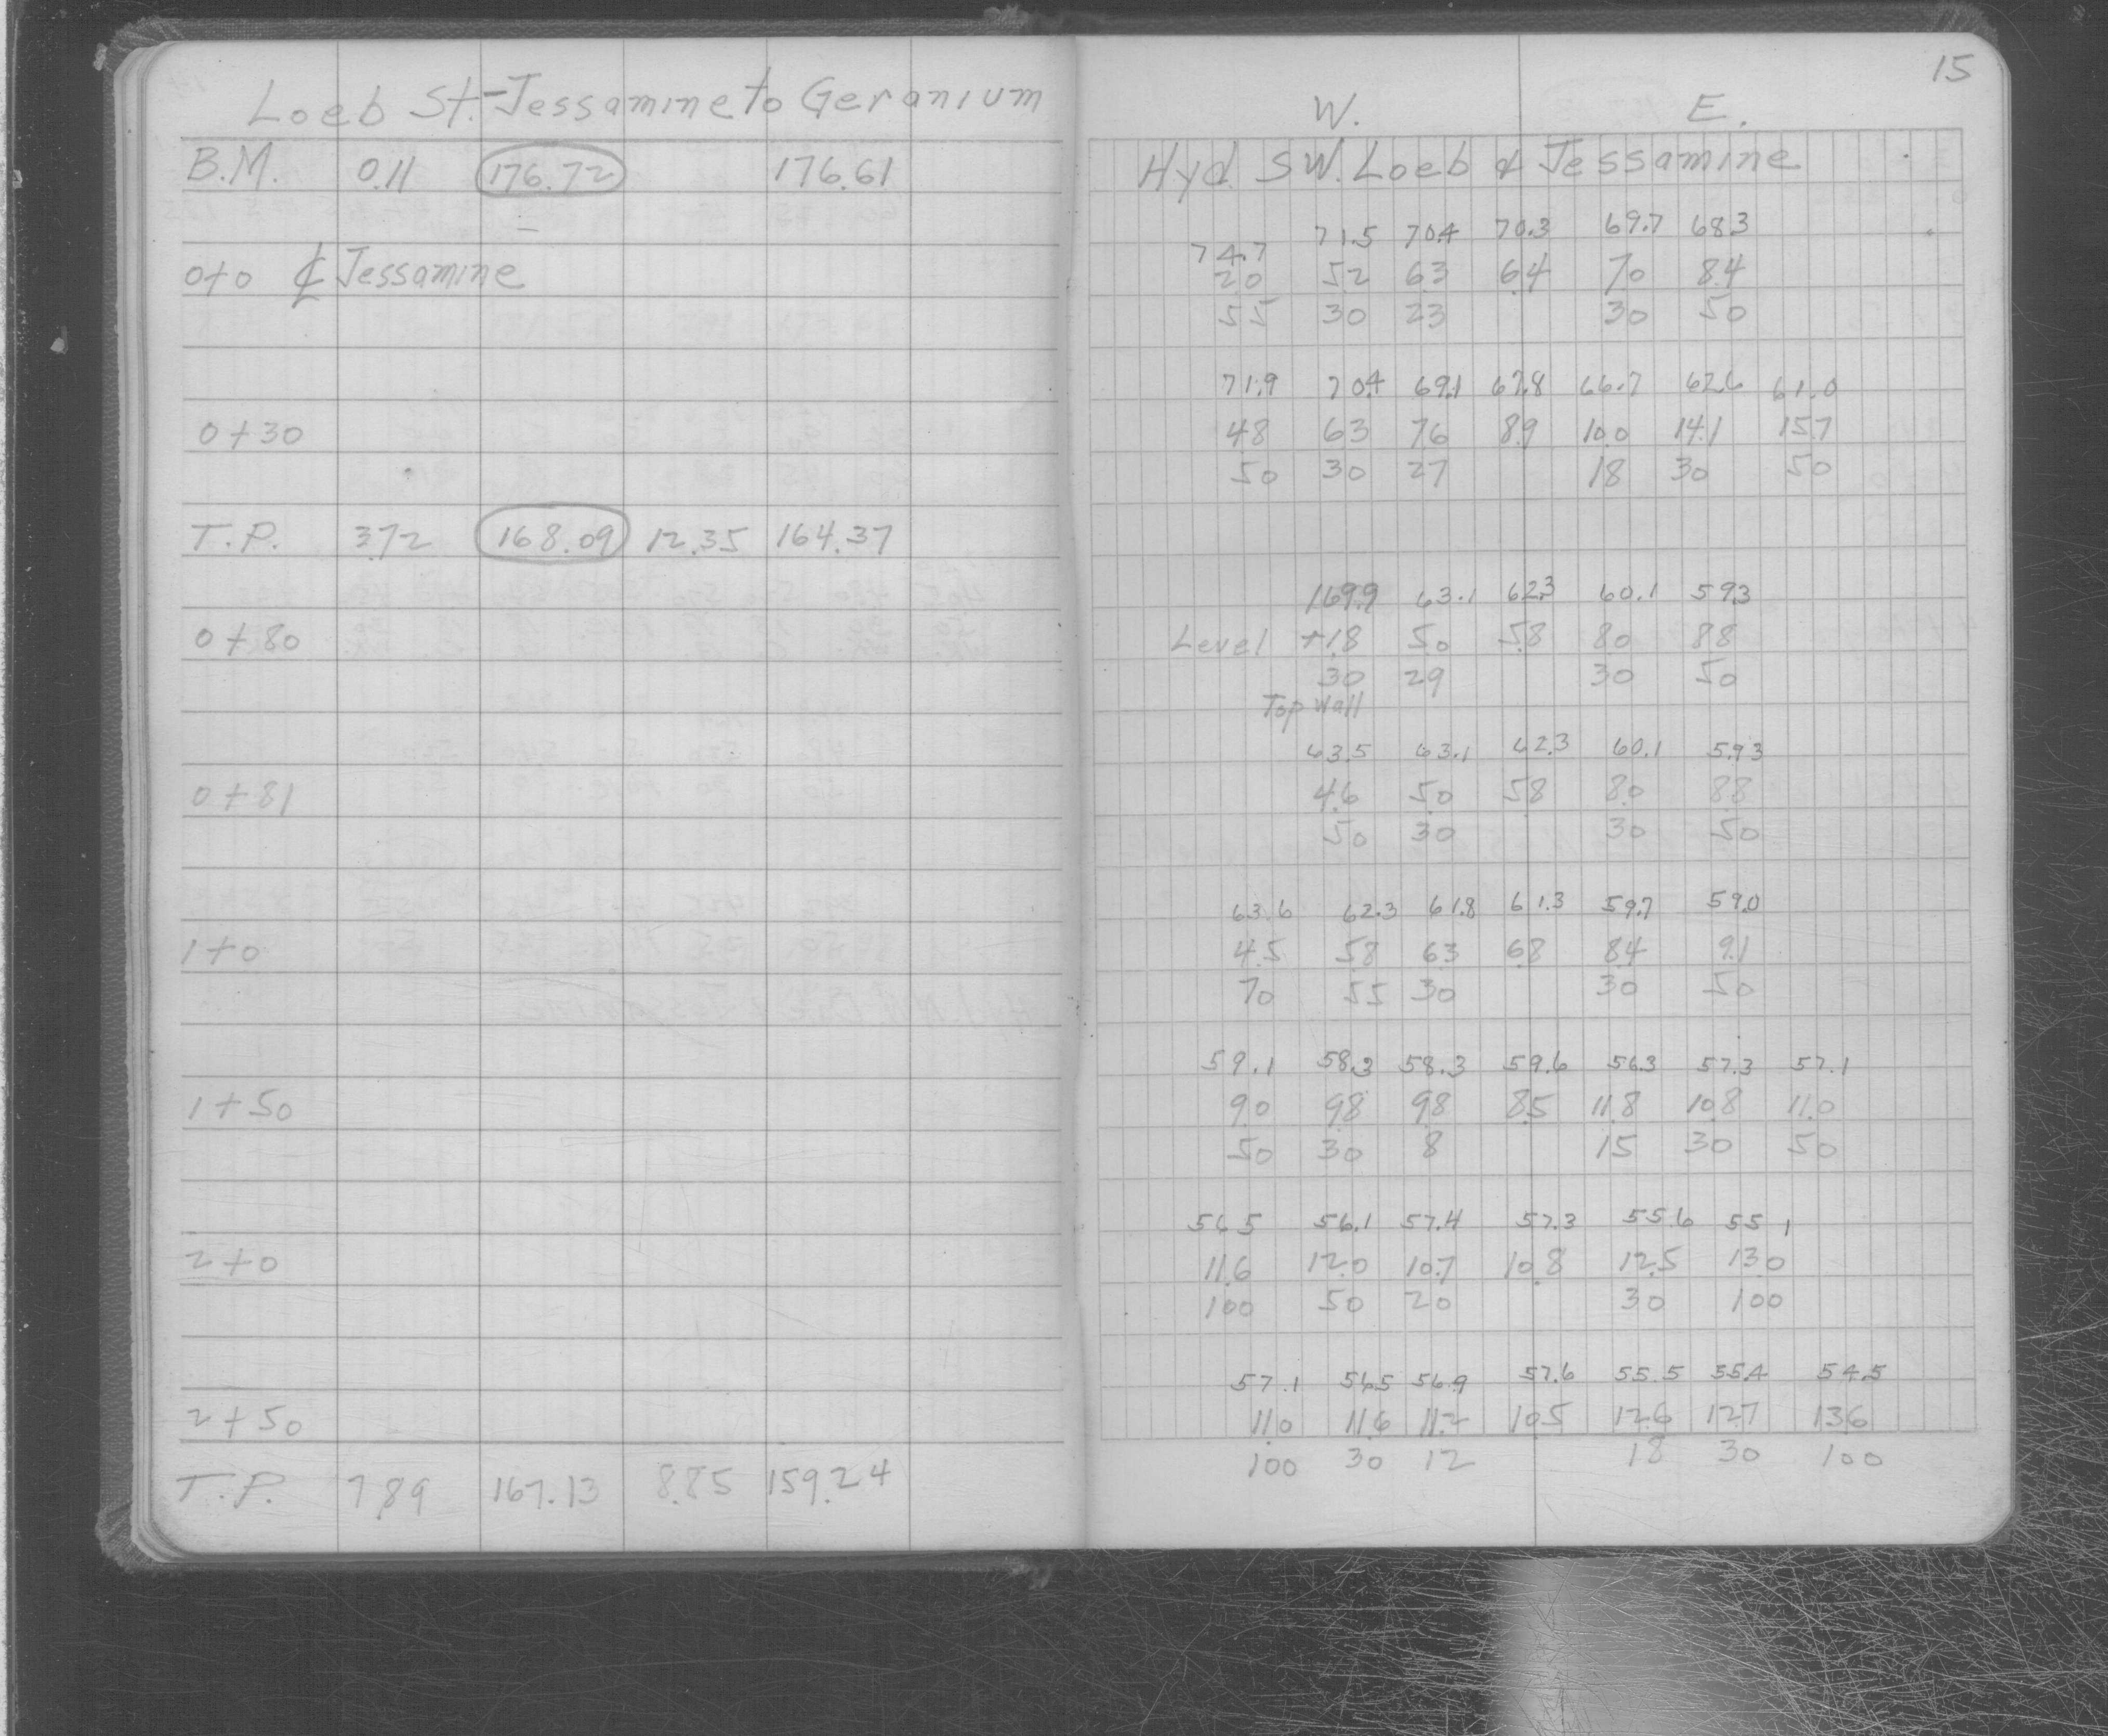 Loeb St.-Jessamine to Geranium
B.M. 0.11 176.72 176.61
0+0 ℄ Jessamine
0+30
T.P. 3.72 168.09 12.35 164.37
0+80
0+81
1+0
1+50
2+0
2+50
T.P. 7.89 167.13 8.85 159.24
15
W. E.
Hyd. SW. Loeb & Jessamine
74.7 71.5 70.4 70.3 69.7 68.3
20 52 63 6.4 70 8.4
55 30 23 30 50
71.9 70.4 69.1 67.8 66.7 62.6 61.0
48 63 76 8.9 10.0 14.1 15.7
50 30 27 18 30 50
169.9 63.1 62.3 60.1 59.3
Level +1.8 50 5.8 80 88
30 29 30 50
Top Wall
63.5 63.1 62.3 60.1 59.3
4.6 5.0 5.8 8.0 88
50 30 30 50
63.6 62.3 61.8 61.3 59.7 59.0
4.5 5.8 63 6.8 8.4 9.1
70 55 30 30 50
59.1 58.3 58.3 59.6 56.3 57.3 57.1
9.0 9.8 9.8 8.5 11.8 10.8 11.0
50 30 8 15 30 50
56.5 56.1 57.4 57.3 55.6 55.1
11.6 12.0 10.7 10.8 12.5 13.0
100 50 20 30 100
57.1 56.5 56.9 57.6 55.5 55.4 54.5
11.0 11.6 11.2 10.5 12.6 12.7 13.6
100 30 12 18 30 100